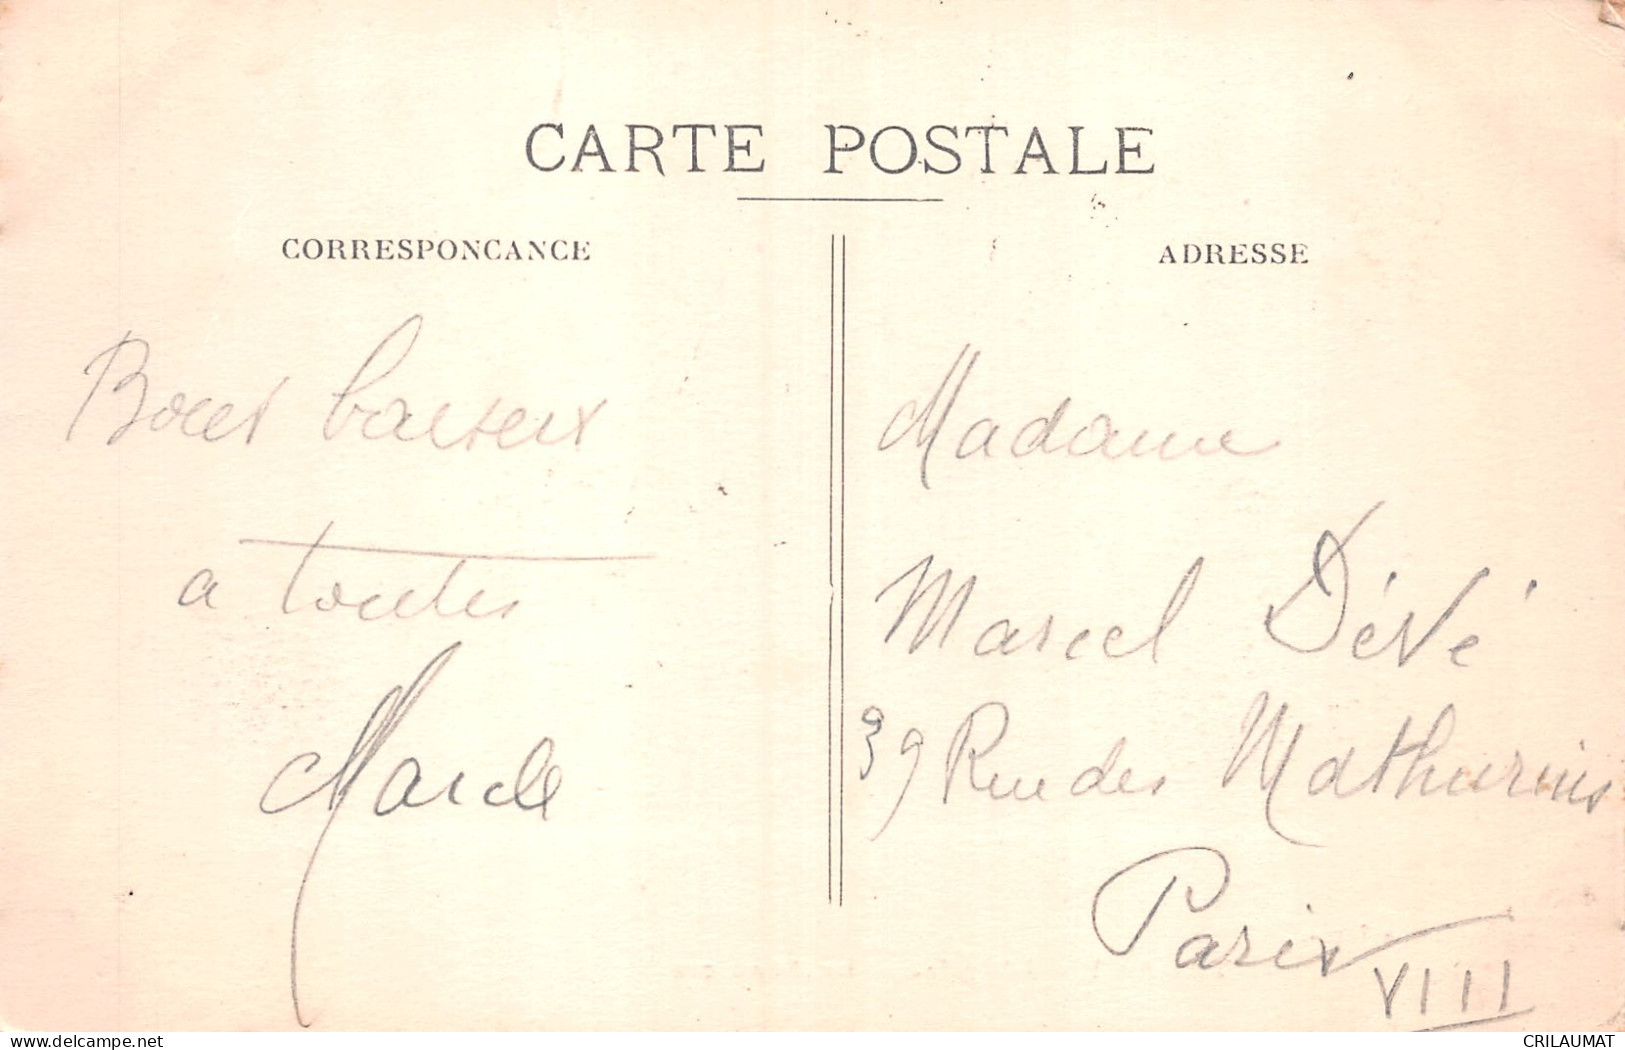 CARTE POSTALE
CORRESPONCANCE
ADRESSE
Bons baisers
a toutes
Marcel
Madame
Marcel Dévé
39 Rue des Mathurins
Paris
VIII
delcampe.net
CRILAUMAT